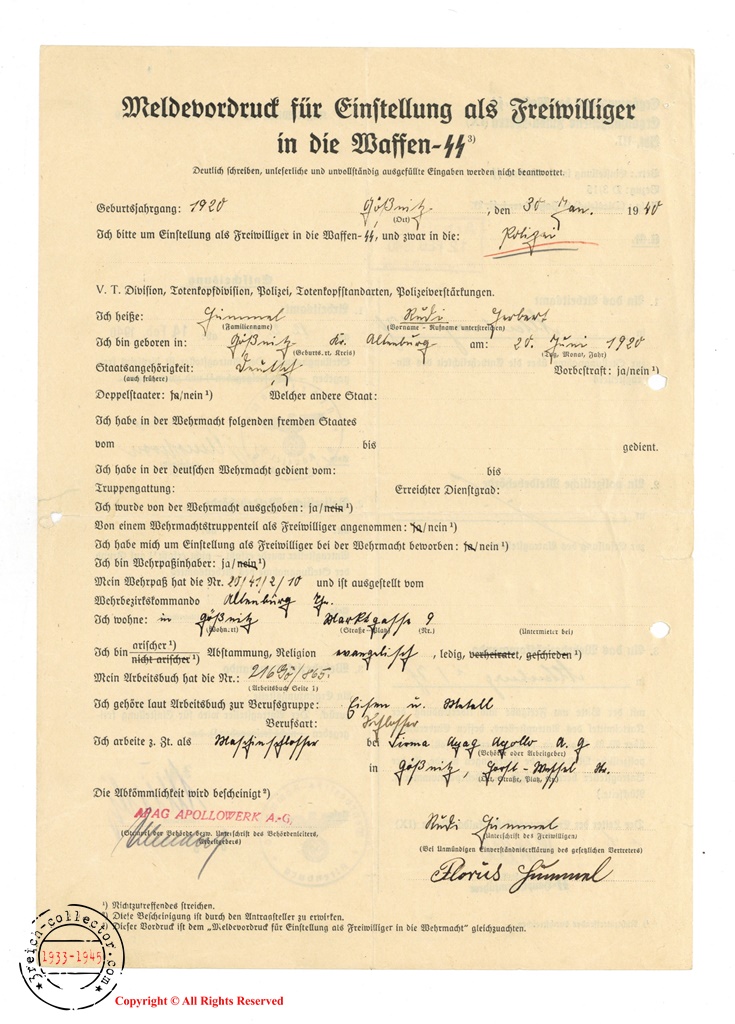 Meldevordruck für Einstellung als Freiwilliger
in die Waffen-SS ³)
Deutlich schreiben, unleserliche und unvollständig ausgefüllte Eingaben werden nicht beantwortet.
Geburtsjahrgang: 1920 Gößnitz, den 30 Jan. 1940
(Ort)
Ich bitte um Einstellung als Freiwilliger in die Waffen-SS, und zwar in die: Polizei
V. T. Division, Totenkopfdivision, Polizei, Totenkopfstandarten, Polizeiverstärkungen.
Ich heiße: Hummel Rudi Herbert
(Familienname) (Vorname - Rufname unterstreichen)
Ich bin geboren in: Gößnitz Kr. Altenburg am: 20. Juni 1920
(Geburtsort, Kreis) (Tag, Monat, Jahr)
Staatsangehörigkeit: Deutsch Vorbestraft: ja/nein ¹)
(auch frühere)
Doppelstaater: ja/nein ¹) Welcher andere Staat:
Ich habe in der Wehrmacht folgenden fremden Staates
vom bis gedient.
Ich habe in der deutschen Wehrmacht gedient vom: bis
Truppengattung: Erreichter Dienstgrad:
Ich wurde von der Wehrmacht ausgehoben: ja/nein ¹)
Von einem Wehrmachtstruppenteil als Freiwilliger angenommen: ja/nein ¹)
Ich habe mich um Einstellung als Freiwilliger bei der Wehrmacht beworben: ja/nein ¹)
Ich bin Wehrpaßinhaber: ja/nein ¹)
Mein Wehrpaß hat die Nr. 20/41/2/10 und ist ausgestellt vom
Wehrbezirkskommando Altenburg Th.
Ich wohne: in Gößnitz Marktgasse 9
(Wohnort) (Straße-Platz) (Nr.) (Untermieter bei)
Ich bin arischer ¹) / nicht arischer ¹) Abstammung, Religion evangelisch, ledig, verheiratet, geschieden ¹)
Mein Arbeitsbuch hat die Nr.: 216
(Arbeitsbuch Seite 1)
Ich gehöre laut Arbeitsbuch zur Berufsgruppe: Eisen u. Metall
Berufsart: Schlosser
Ich arbeite z. Zt. als Maschinschlosser bei Firma Apag Apollo A. G
(Behörde oder Arbeitgeber)
in Gößnitz, Horst-Wessel Str.
(Ort, Straße, Platz, Nr.)
Die Abkömmlichkeit wird bescheinigt ²)
APAG APOLLOWERK A.-G,
(Stempel der Behörde bezw. Unterschrift des Behördenleiters, Arbeitgebers)
Rudi Hummel
(Unterschrift des Freiwilligen)
(Bei Unmündigen Einverständniserklärung des gesetzlichen Vertreters)
Florus Hummel
¹) Nichtzutreffendes streichen.
²) Diese Bescheinigung ist durch den Antragsteller zu erwirken.
³) Dieser Vordruck ist dem „Meldevordruck für Einstellung als Freiwilliger in die Wehrmacht" gleichzuachten.
3reich-collector.com
1933-1945
Copyright © All Rights Reserved